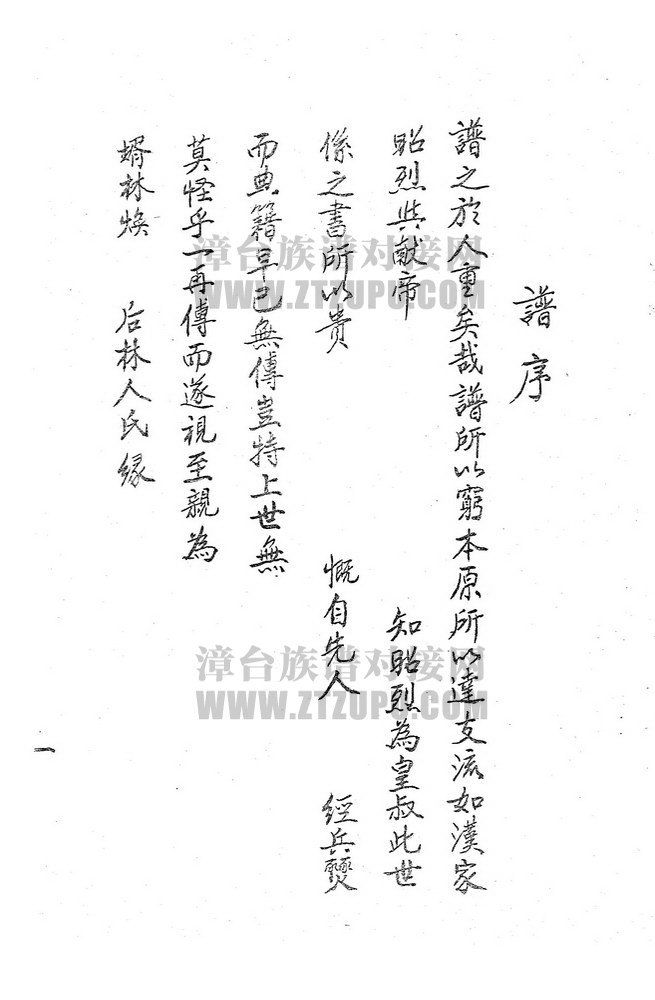 譜序
譜之於人重矣哉譜所以窮本原所以達支流如漢家
昭烈與獻帝 知昭烈為皇叔此世
係之書所以貴 慨自先人 經兵燹
而典籍早已無傳豈特上世無
莫怪乎一再傳而遂視至親為
婿林煥 后林人氏緣
一
漳台族谱对接网
WWW.ZTZUPU.COM
漳台族谱对接网
WWW.ZTZUPU.COM